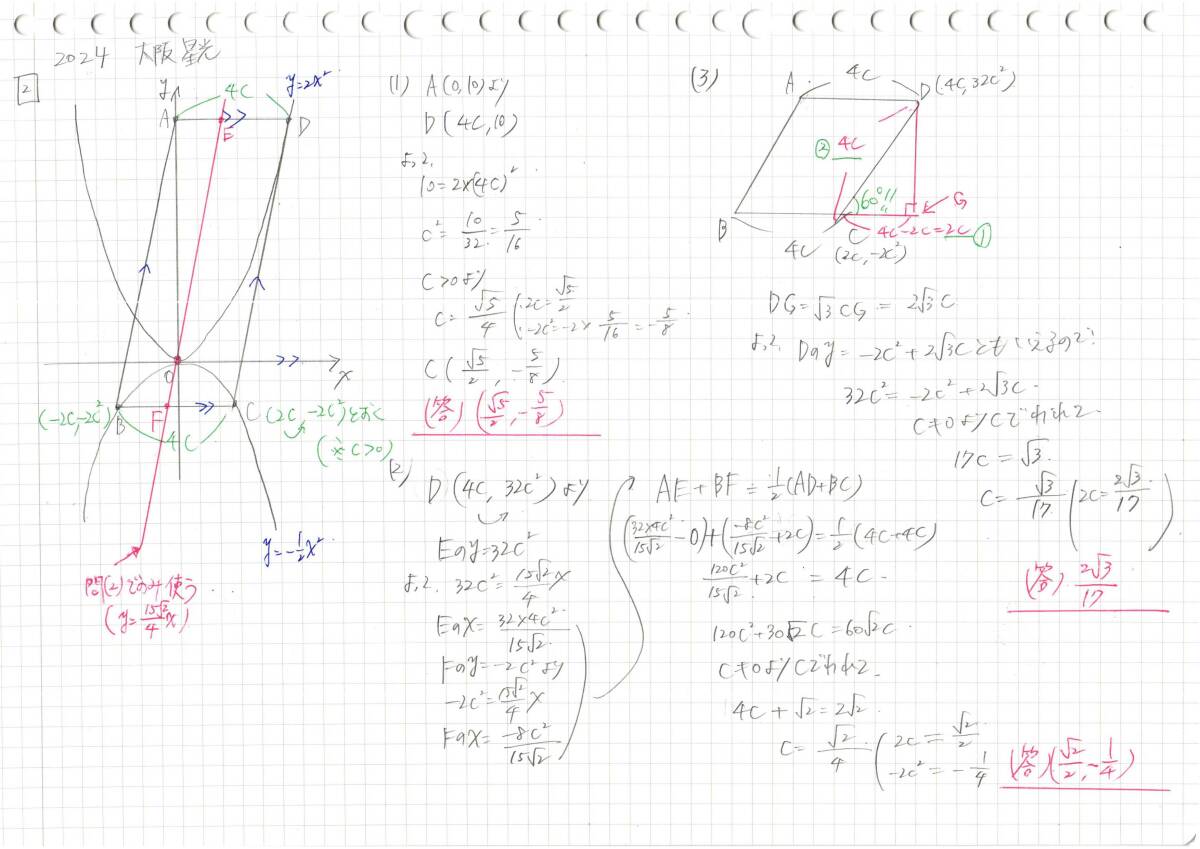 2024 大阪星光
2
y
4C
y=2x²
A
E
D
O
x
(-2C,-2C²)
B
F
C
(2C,-2C²)とおく
4C
(※C>0)
y=-1/2x²
問(2)でのみ使う
(y=15√2/4x)
(1) A(0,10)より
D(4C,10)
よって、
10=2×(4C)²
C²=10/32=5/16
C>0より
C=√5/4 (2C=√5/2
-2C²=-2×5/16=-5/8
C(√5/2,-5/8)
(答)(√5/2,-5/8)
(2)
D(4C,32C²)より
Eのy=32C²
よって、32C²=15√2/4x
Eのx=32×4C²/15√2
Fのy=-2C²より
-2C²=15√2/4x
Fのx=-8C²/15√2
AE+BF=1/2(AD+BC)
(32×4C²/15√2-0)+(-8C²/15√2+2C)=1/2(4C+4C)
120C²/15√2+2C=4C
120C²+30√2C=60√2C
C≠0よりCでわって、
4C+√2=2√2
C=√2/4 (2C=√2/2
-2C²=-1/4
(答)(√2/2,-1/4)
(3)
4C
A
D(4C,32C²)
② 4C
60°
G
B
4C
C
4C-2C=2C ①
(2C,-2C²)
DG=√3CG=2√3C
よって、Dのy=-2C²+2√3Cともいえるので
32C²=-2C²+2√3C
C≠0よりCでわって、
17C=√3
C=√3/17 (2C=2√3/17)
(答)2√3/17